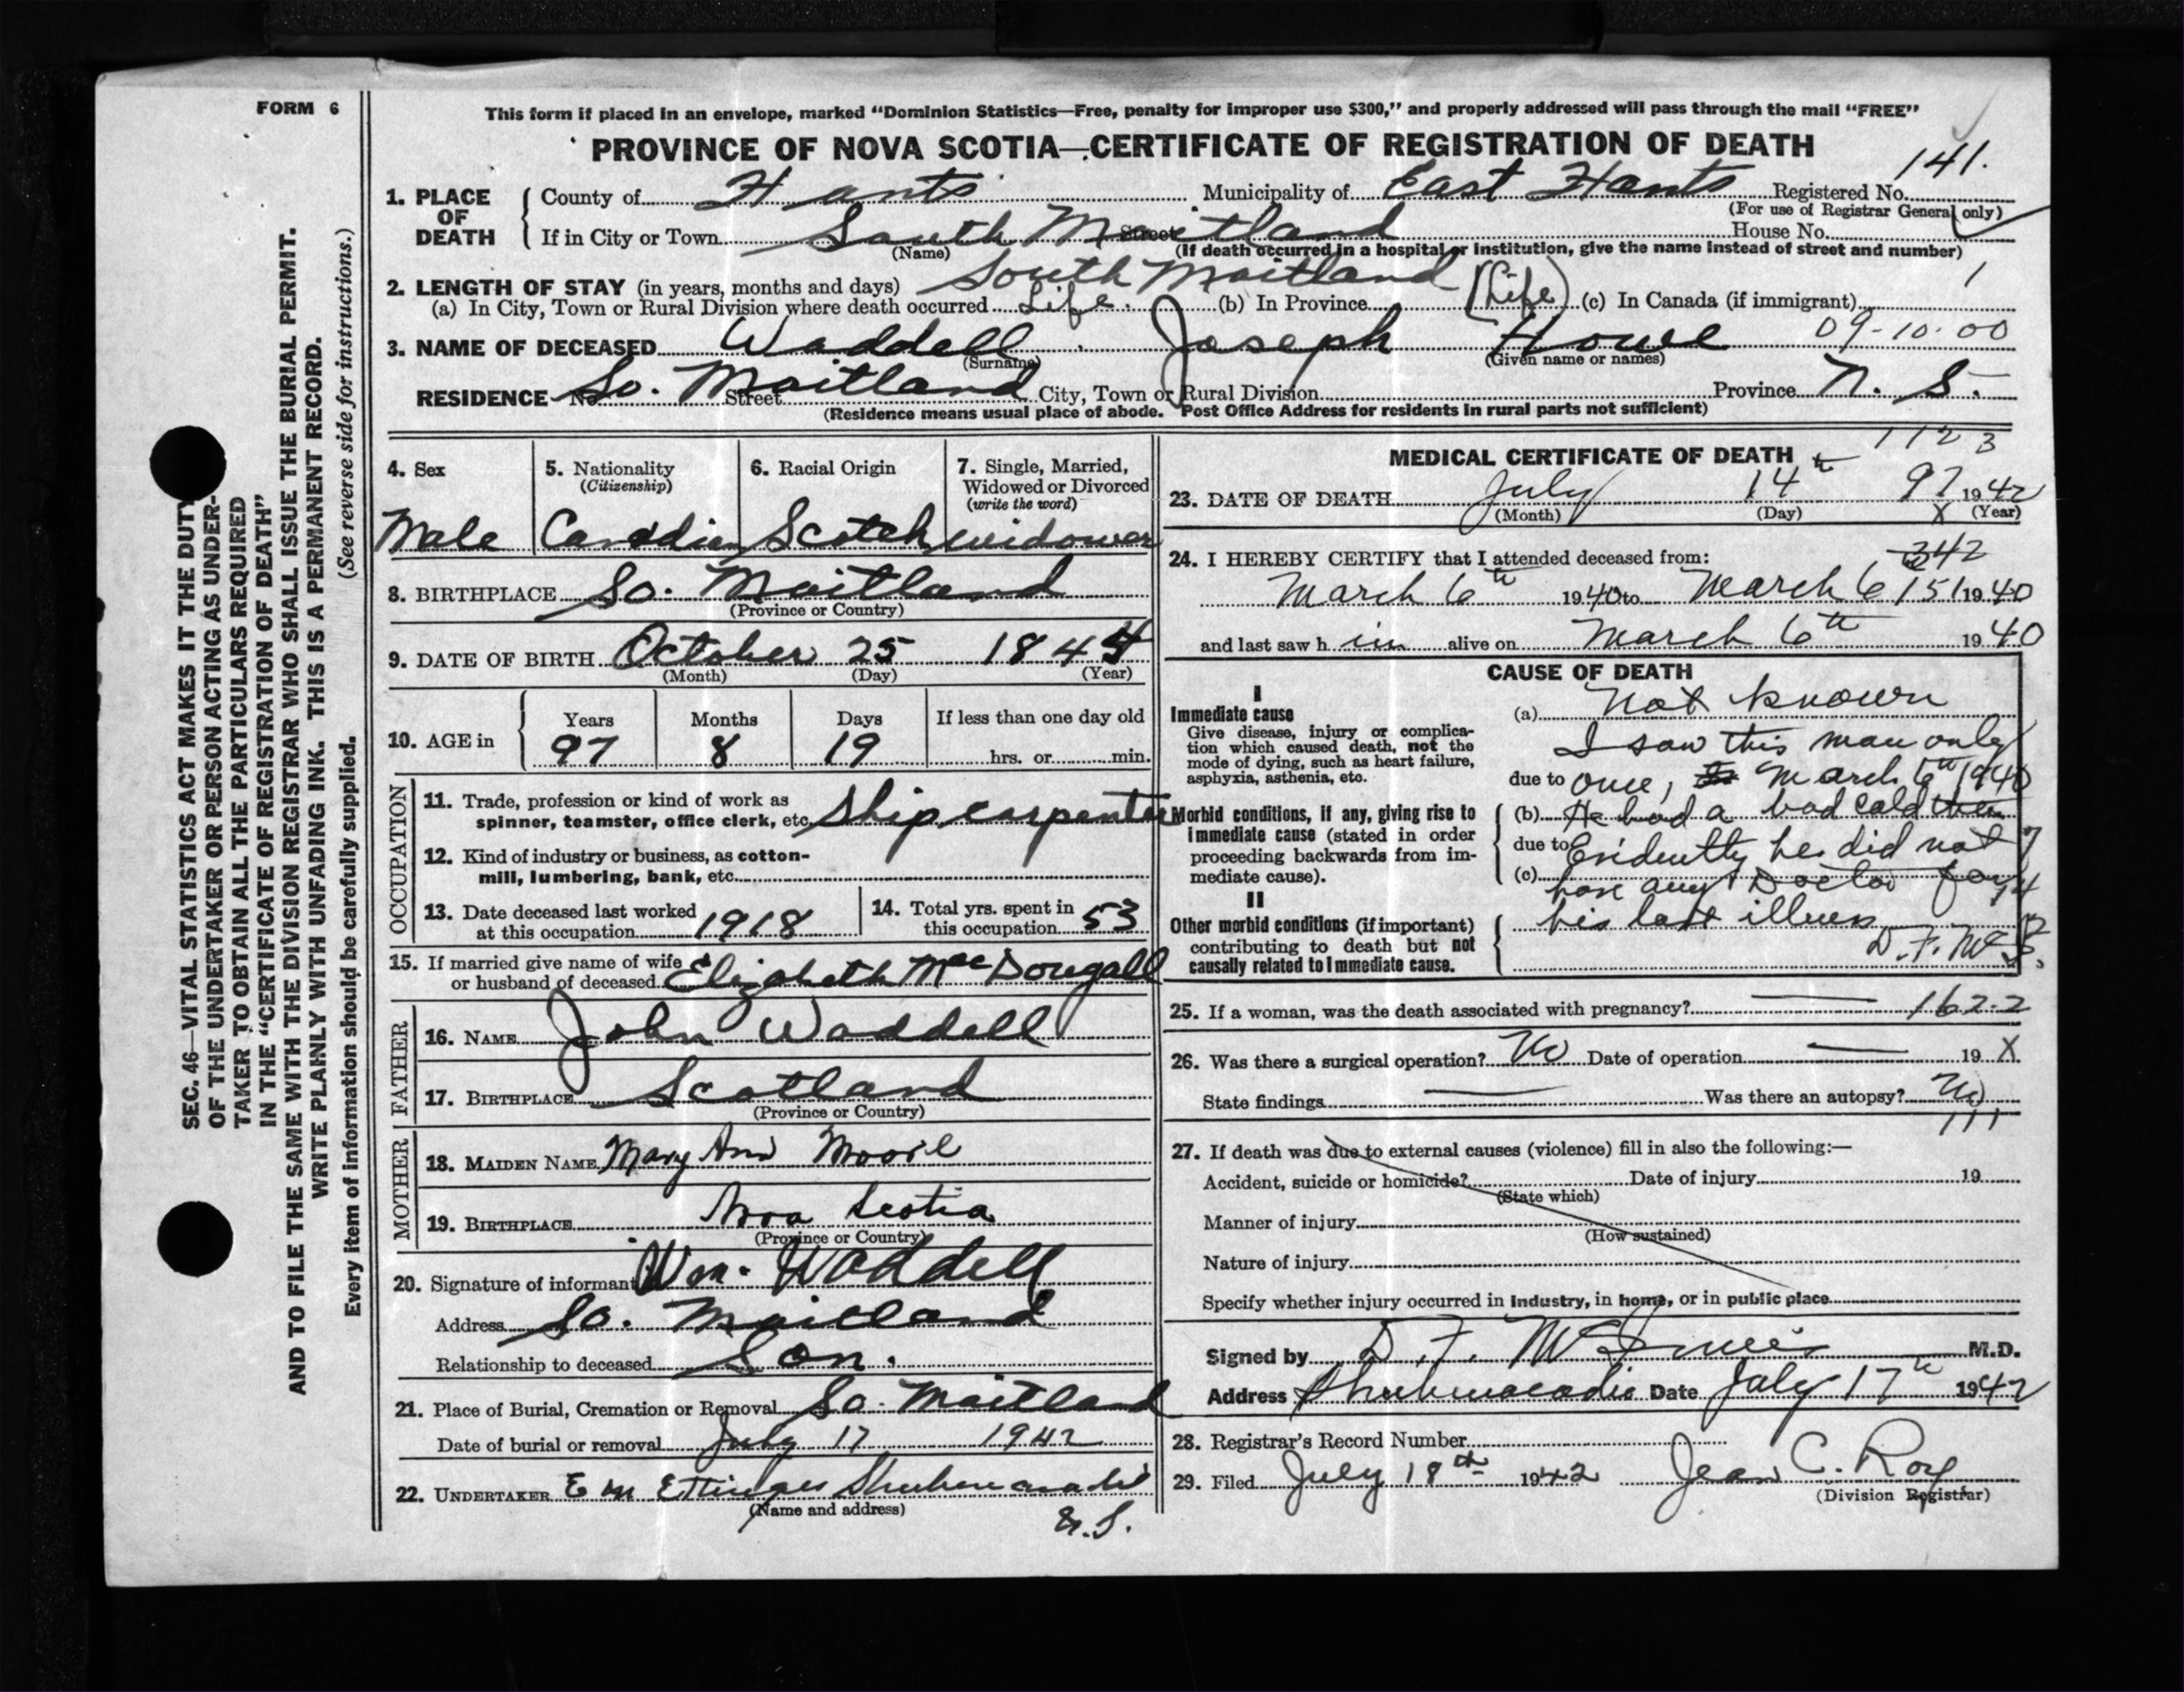 FORM 6
This form if placed in an envelope, marked “Dominion Statistics—Free, penalty for improper use $300,” and properly addressed will pass through the mail “FREE”
PROVINCE OF NOVA SCOTIA—CERTIFICATE OF REGISTRATION OF DEATH
141.
1. PLACE OF DEATH
County of Hants Municipality of East Hants Registered No.
(For use of Registrar General only)
If in City or Town South Maitland Street House No.
(Name) (If death occurred in a hospital or institution, give the name instead of street and number)
South Maitland
2. LENGTH OF STAY (in years, months and days)
(a) In City, Town or Rural Division where death occurred Life. (b) In Province (Life) (c) In Canada (if immigrant) 1
3. NAME OF DECEASED Waddell Joseph Howe 09-10-00
(Surname) (Given name or names)
RESIDENCE No. So. Maitland Street City, Town or Rural Division Province N. S.
(Residence means usual place of abode. Post Office Address for residents in rural parts not sufficient)
4. Sex
Male
5. Nationality
(Citizenship)
Canadian
6. Racial Origin
Scotch
7. Single, Married,
Widowed or Divorced
(write the word)
widower
8. BIRTHPLACE So. Maitland
(Province or Country)
9. DATE OF BIRTH October 25 1844
(Month) (Day) (Year)
10. AGE in
Years Months Days If less than one day old
97 8 19 hrs. or min.
OCCUPATION
11. Trade, profession or kind of work as
spinner, teamster, office clerk, etc. Ship carpenter
12. Kind of industry or business, as cotton-
mill, lumbering, bank, etc.
13. Date deceased last worked
at this occupation 1918
14. Total yrs. spent in
this occupation 53
15. If married give name of wife
or husband of deceased Elizabeth MacDougall
FATHER
16. NAME John Waddell
17. BIRTHPLACE Scotland
(Province or Country)
MOTHER
18. MAIDEN NAME Mary Ann
19. BIRTHPLACE Nova Scotia
(Province or Country)
20. Signature of informant Wm. Waddell
Address So. Maitland
Relationship to deceased Son.
21. Place of Burial, Cremation or Removal So. Maitland
Date of burial or removal July 17 1942
22. UNDERTAKER E M Ettinger Shubenacadie
(Name and address)
N.S.
1123
MEDICAL CERTIFICATE OF DEATH
23. DATE OF DEATH July 14th 97 1942
(Month) (Day) X (Year)
24. I HEREBY CERTIFY that I attended deceased from:
342
March 6th 1940 to March 6 151 1940
and last saw h im alive on March 6th 1940
CAUSE OF DEATH
I
Immediate cause
Give disease, injury or complica-
tion which caused death, not the
mode of dying, such as heart failure,
asphyxia, asthenia, etc.
(a) Not known
I saw this man only
due to once, March 6th 1940
Morbid conditions, if any, giving rise to
immediate cause (stated in order
proceeding backwards from im-
mediate cause).
(b) He had a bad cold then
due to Evidently he did not
(c) have any Doctor for
II
Other morbid conditions (if important)
contributing to death but not
causally related to immediate cause.
his last illness
25. If a woman, was the death associated with pregnancy? — 162-2
26. Was there a surgical operation? No Date of operation — 19 X
State findings — Was there an autopsy? No
111
27. If death was due to external causes (violence) fill in also the following:—
Accident, suicide or homicide? Date of injury 19
(State which)
Manner of injury
(How sustained)
Nature of injury
Specify whether injury occurred in industry, in home, or in public place
Signed by D. F. M.D.
Address Shubenacadie Date July 17th 1942
28. Registrar’s Record Number
29. Filed July 18th 1942 Jean C. Roy
(Division Registrar)
SEC. 46—VITAL STATISTICS ACT MAKES IT THE DUTY
OF THE UNDERTAKER OR PERSON ACTING AS UNDER-
TAKER TO OBTAIN ALL THE PARTICULARS REQUIRED
IN THE “CERTIFICATE OF REGISTRATION OF DEATH”
AND TO FILE THE SAME WITH THE DIVISION REGISTRAR WHO SHALL ISSUE THE BURIAL PERMIT.
WRITE PLAINLY WITH UNFADING INK. THIS IS A PERMANENT RECORD.
Every item of information should be carefully supplied. (See reverse side for instructions.)